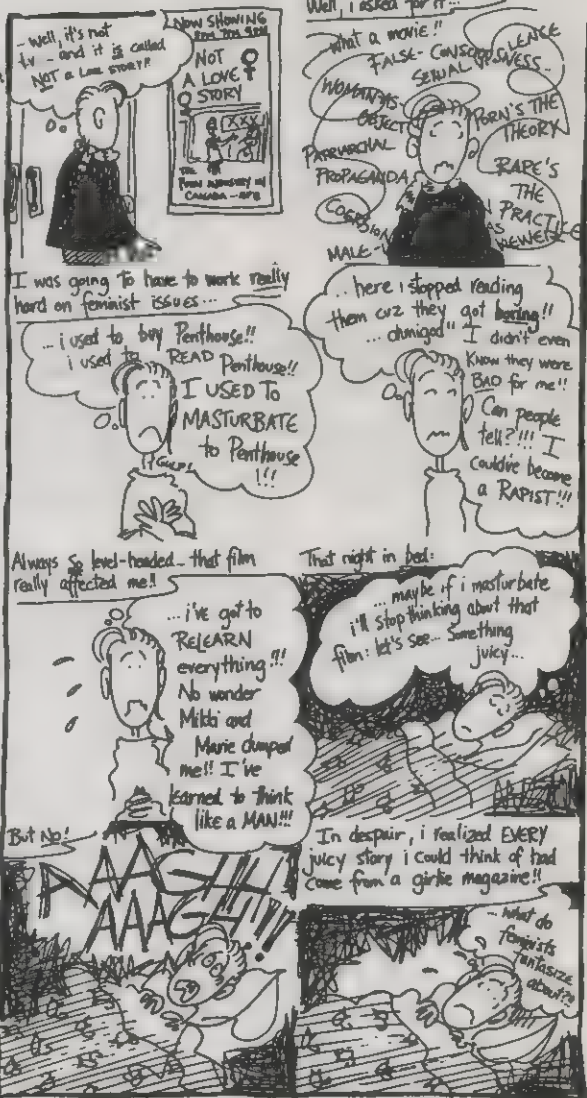 Well, i asked for it...
... well, it's not
t.v. - and it is called
NOT a Love STORY!!
NOW SHOWING
NOT
A LOVE
STORY
XXX
THE
PORN INDUSTRY IN
CANADA
what a movie!!
FALSE-CONSCIOUSNESS...
SEXUAL VIOLENCE
WOMAN AS
OBJECT
PORN'S THE
THEORY
PATRIARCHAL
PROPAGANDA
RAPE'S
THE
PRACTICE
COERSION
MALE-
AS
VIEWER
I was going to have to work really
hard on feminist issues...
... i used to buy Penthouse!!
i used to READ Penthouse!!
I USED TO
MASTURBATE
to Penthouse
!!!
!! GULP!
... here i stopped reading
them cuz they got boring!!
... ohmigod!! I didn't even
Know they were
BAD for me!!
Can people
tell?!!! I
could've become
a RAPIST!!!
Always so level-headed - that film
really affected me!!
... i've got to
RELEARN
everything!!!
No wonder
Mikki and
Marie dumped
me!! I've
learned to think
like a MAN!!!
That night in bed:
... maybe if i masturbate
i'll stop thinking about that
film: let's see... Something
juicy...
But No!
AAAGH!!!
AAAGH!!!
In despair, i realized EVERY
juicy story i could think of had
come from a girlie magazine!!
... what do
feminists
fantasize
about?